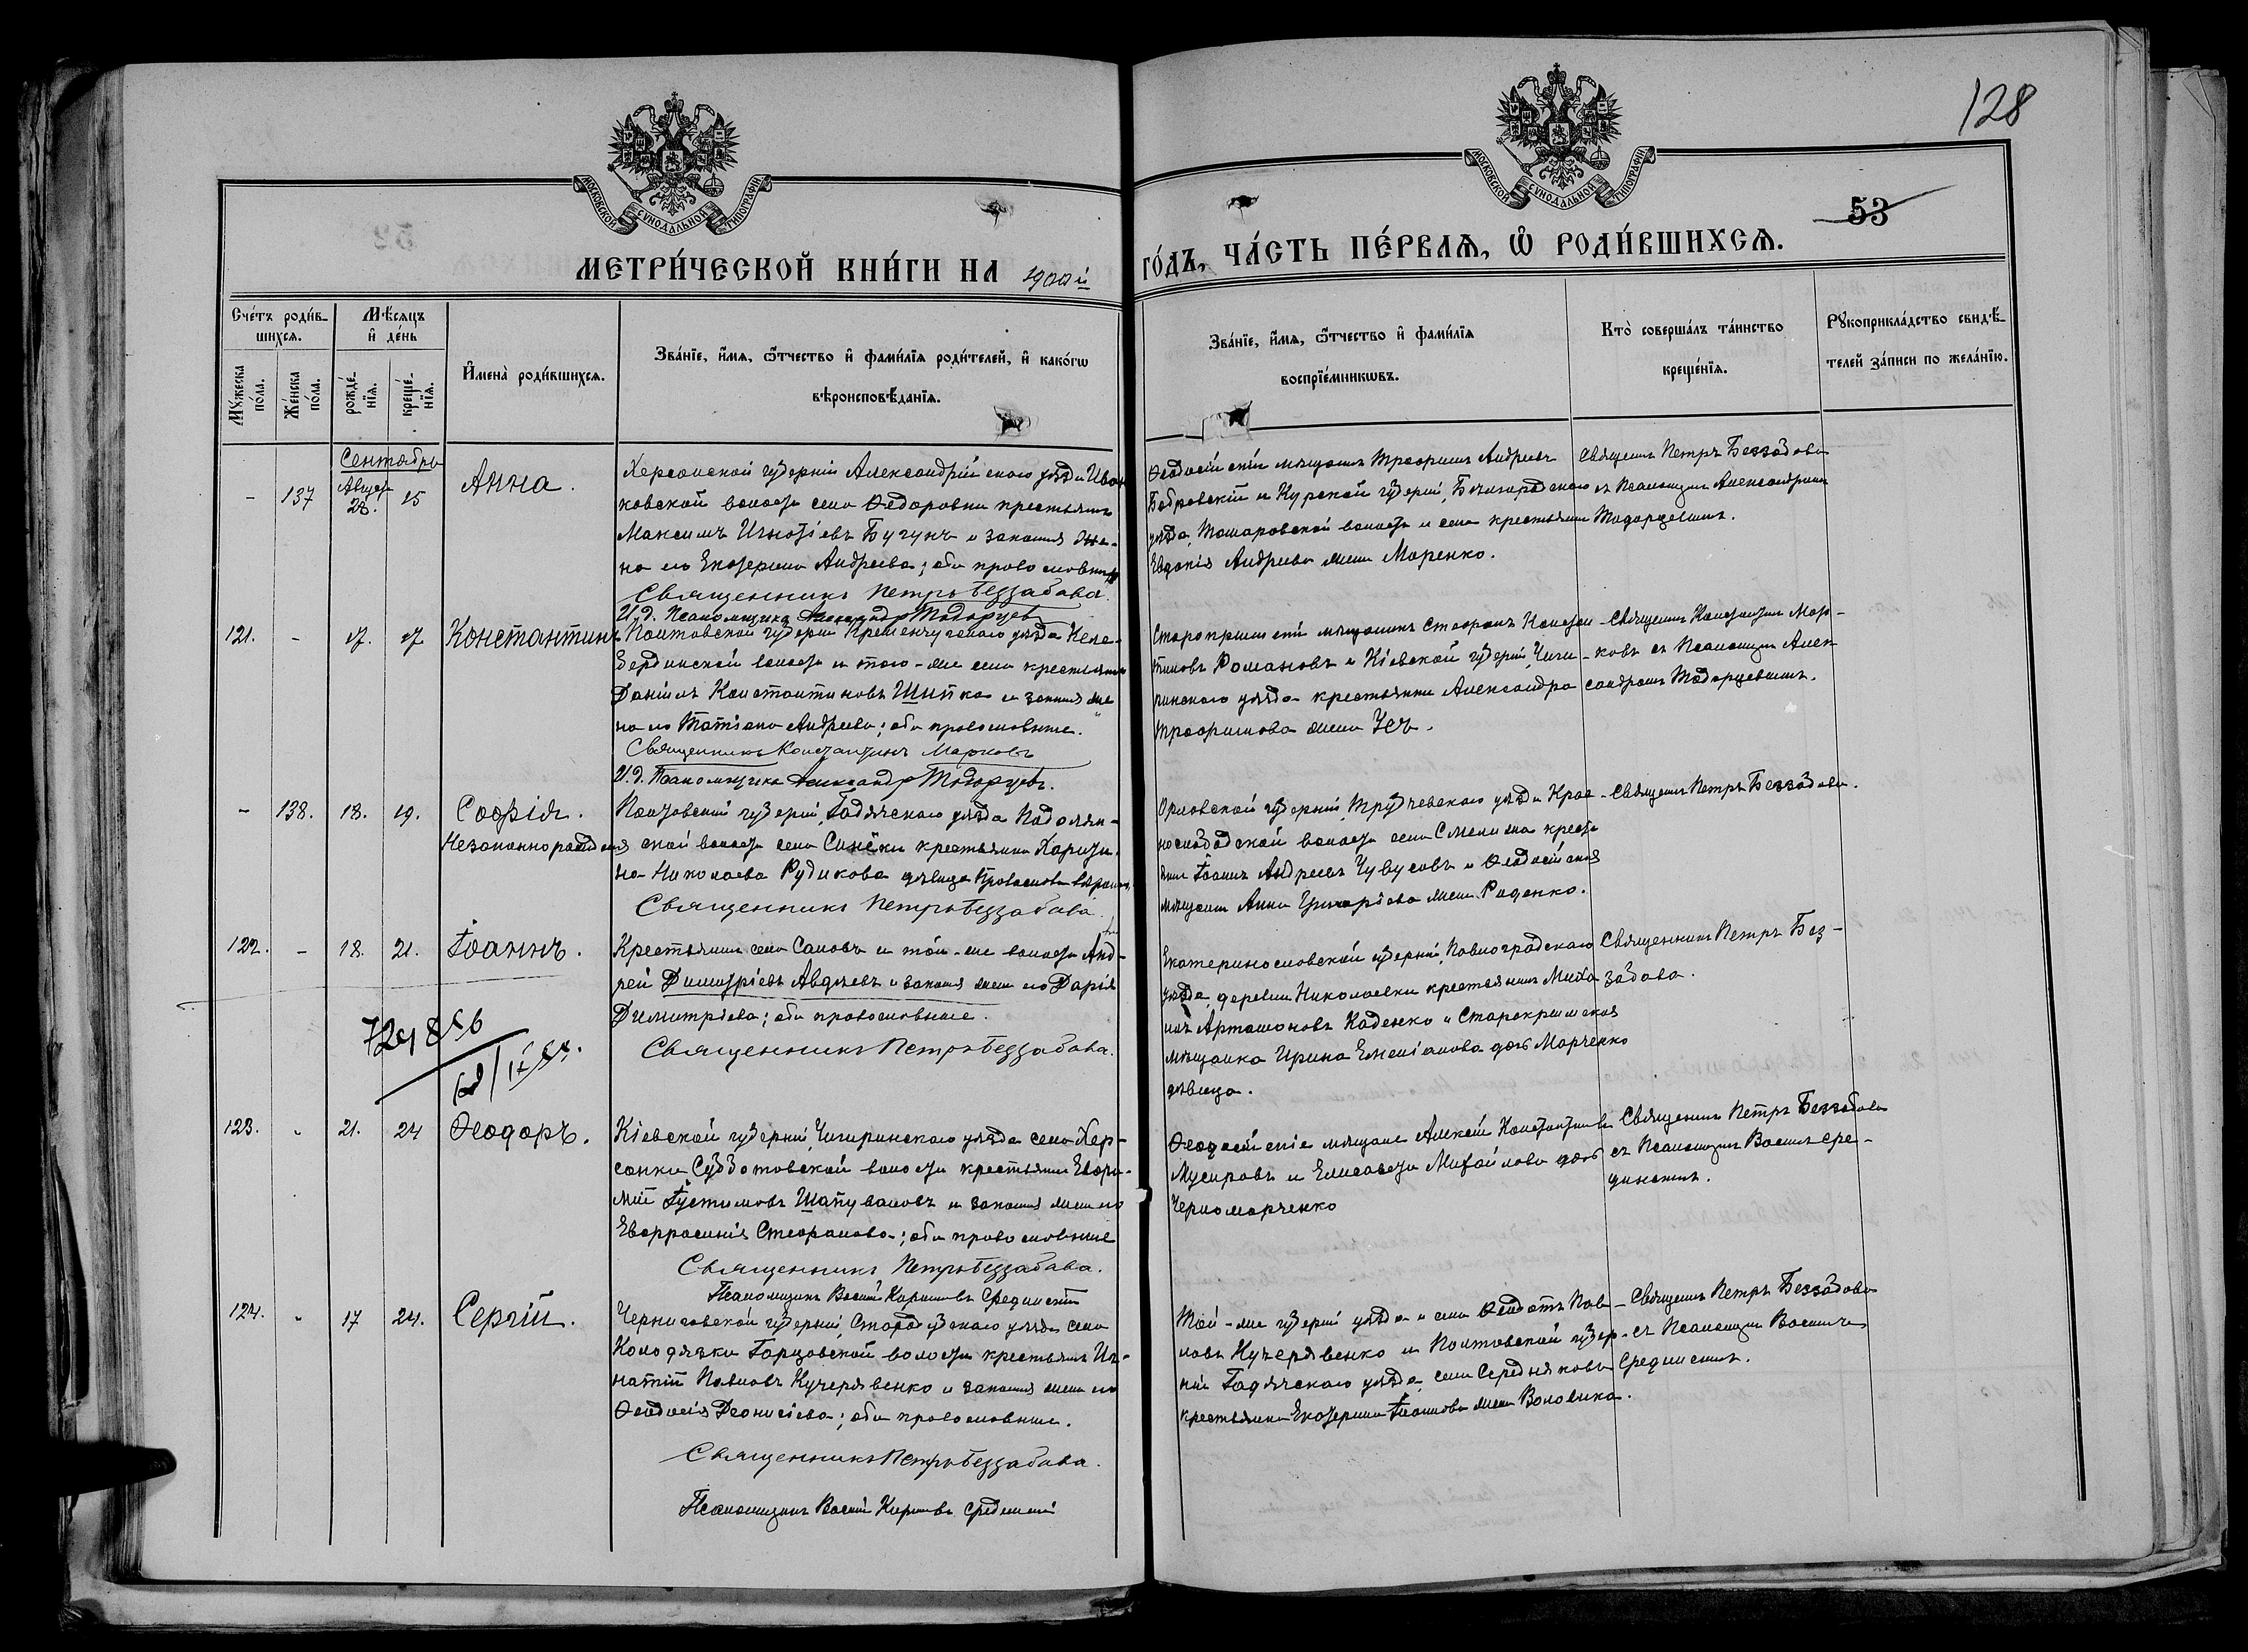 128
53
МОСКОВСКОЙ СѴНОДАЛЬНОЙ ТИПОГРАФІИ
МОСКОВСКОЙ СѴНОДАЛЬНОЙ ТИПОГРАФІИ
МЕТРИ́ЧЕСКОЙ КНИ́ГИ НА 1900й
ГО́ДЪ, ЧА́СТЬ ПЕ́РВАѦ, Ѡ РОДИ́ВШИХСѦ.
Сче́тъ роди́в-
шихсѧ.
Мꙋ́жеска по́ла.
Же́нска по́ла.
Мѣ́сѧцъ
и҆ де́нь
рожде́-
нїѧ.
креще́-
нїѧ.
И҆мена̀ роди́вшихсѧ.
Зва́нїе, и҆́мѧ, ѻ҆́тчество и҆ фами́лїѧ роди́телей, и҆ како́гѡ
вѣроисповѣ́данїѧ.
Зва́нїе, и҆́мѧ, ѻ҆́тчество и҆ фами́лїѧ
воспрїе́мникѡвъ.
Кто̀ соверша́лъ та́инство
креще́нїѧ.
Рꙋкоприкла́дство свидѣ́-
телей за́писи по жела́нїю.
Сентябрь
- 137 28. 15 Анна.
Херсонской губерніи Александрійскаго уѣзда Ива-
ковской волости села Ѳедоровки крестьянинъ
Максимъ Игнатіевъ Бугунъ и законная же-
на его Екатерина Андреева; оба православные
Священникъ Петръ Беззабава.
И.д. Псаломщика Александръ Тодорцевъ
Ѳеодосійскій мѣщанинъ Трофимъ Андреевъ
Бобровскій и Курской губерніи, Бѣлгородскаго
уѣзда, Томаровской волости и села крестьянина
Евдокія Андреева жена Маренко.
Священ. Петръ Беззабава
съ Псаломщик. Александромъ
Тодорцевымъ.
121. - 17. 17 Константинъ
Полтавской губерніи Кременчугскаго уѣзда Келе-
бердинской волости и того-же села крестьянинъ
Даніилъ Константиновъ Шипка и законная же
на его Татіана Андреева; оба православные.
Священникъ Константинъ Марковъ
И.д. Псаломщика Александръ Тодорцевъ.
Старокрымскій мѣщанинъ Стефанъ Констан-
тиновъ Романовъ и Кіевской губерніи, Чиги-
ринскаго уѣзда крестьянка Александра
Трофимова жена Чечъ.
Священ. Константинъ Мар-
ковъ съ Псаломщик. Алек-
сандромъ Тодорцевымъ.
- 138. 18. 19. Софія.
Незаконнорожденная
Полтавской губерніи, Гадячскаго уѣзда Подолян-
ской волости села Синёвки крестьянка Харити-
на Николаева Рудикова дѣвица Православн. вѣроисп.
Священникъ Петръ Беззабава.
Орловской губерніи, Трубчевскаго уѣзда Крас-
нослободской волости села Смелижа кресть
янин Іоаннъ Андреевъ Чувусовъ и Ѳеодосійская
мѣщанка Анна Григоріева жена Раденко.
Священ. Петръ Беззабава.
122. - 18. 21. Іоаннъ.
Крестьянинъ села Саловъ и той-же волости Анд-
рей Димитріевъ Авдѣевъ и законная жена его Дарія
Димитріева; оба православные.
Священникъ Петръ Беззабава.
Екатеринославской губерніи, Павлоградскаго
уѣзда, деревни Николаевки крестьянинъ Миха
илъ Артамоновъ Каденко и Старокрымская
мѣщанка Ирина Емеліанова дочь Марченко
дѣвица.
Священникъ Петръ Без-
забава.
123. 21. 24 Ѳеодоръ.
Кіевской губерніи, Чигиринскаго уѣзда села Хер-
сонки Субботовской волости крестьянинъ Евфи-
мій Іустиновъ Шапуваловъ и законная жена его
Евфросинія Стефанова; оба православные
Священникъ Петръ Беззабава.
Псаломщикъ Василій Кириловъ Срединскій
Ѳеодосійскіе мѣщане Алексѣй Константиновъ
Мусировъ и Елисавета Михайлова дочь
Черномарченко
Священникъ Петръ Беззабава
съ Псаломщик. Василіемъ Сре-
динскимъ.
124. 17 24. Сергій.
Черниговской губерніи, Стародубскаго уѣзда села
Колодязки Горцовской волости крестьянинъ Иг-
натій Павловъ Кучерявенко и законная жена его
Ѳеодосія Діонисіева; оба православные.
Священникъ Петръ Беззабава.
Псаломщикъ Василій Кириловъ Срединскій
Той-же губерніи уѣзда и села Ѳеодотъ Пав-
ловъ Кучерявенко и Полтавской губер-
ніи Гадячскаго уѣзда, села Середнякова
крестьянка Екатерина Іоаннова жена Воловика.
Священ. Петръ Беззабава
съ Псаломщик. Василіемъ
Срединскимъ.